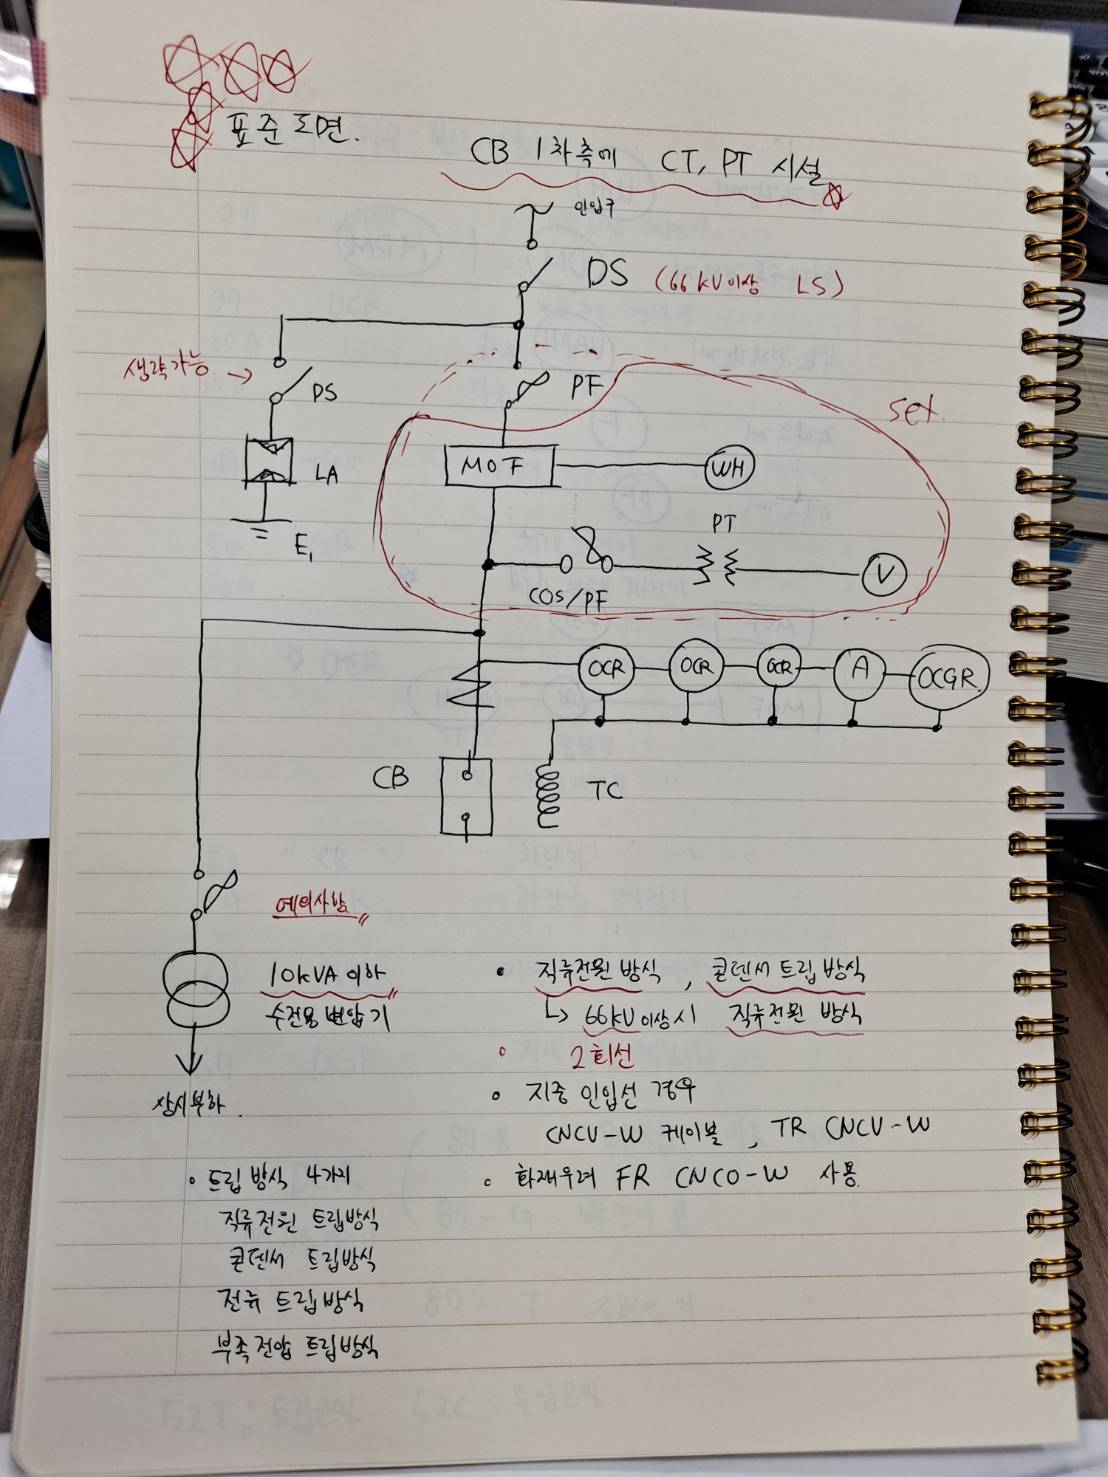 표준도면.
CB 1차측에 CT, PT 시설
인입구
DS (66kV이상 LS)
생략가능 →
PS
PF
set.
LA
MOF
WH
E₁
PT
COS/PF
V
OCR OCR OCR A OCGR
CB
TC
예외사항
10kVA 이하
수전용 변압기
상시부하.
• 직류전원 방식, 콘덴서 트립 방식
↳ 66kV 이상시 직류전원 방식
• 2회선
• 지중 인입선 경우
CNCV-W 케이블, TR CNCV-W
• 화재우려 FR CNCO-W 사용
• 트립 방식 4가지
직류전원 트립방식
콘덴서 트립방식
전류 트립방식
부족전압 트립방식